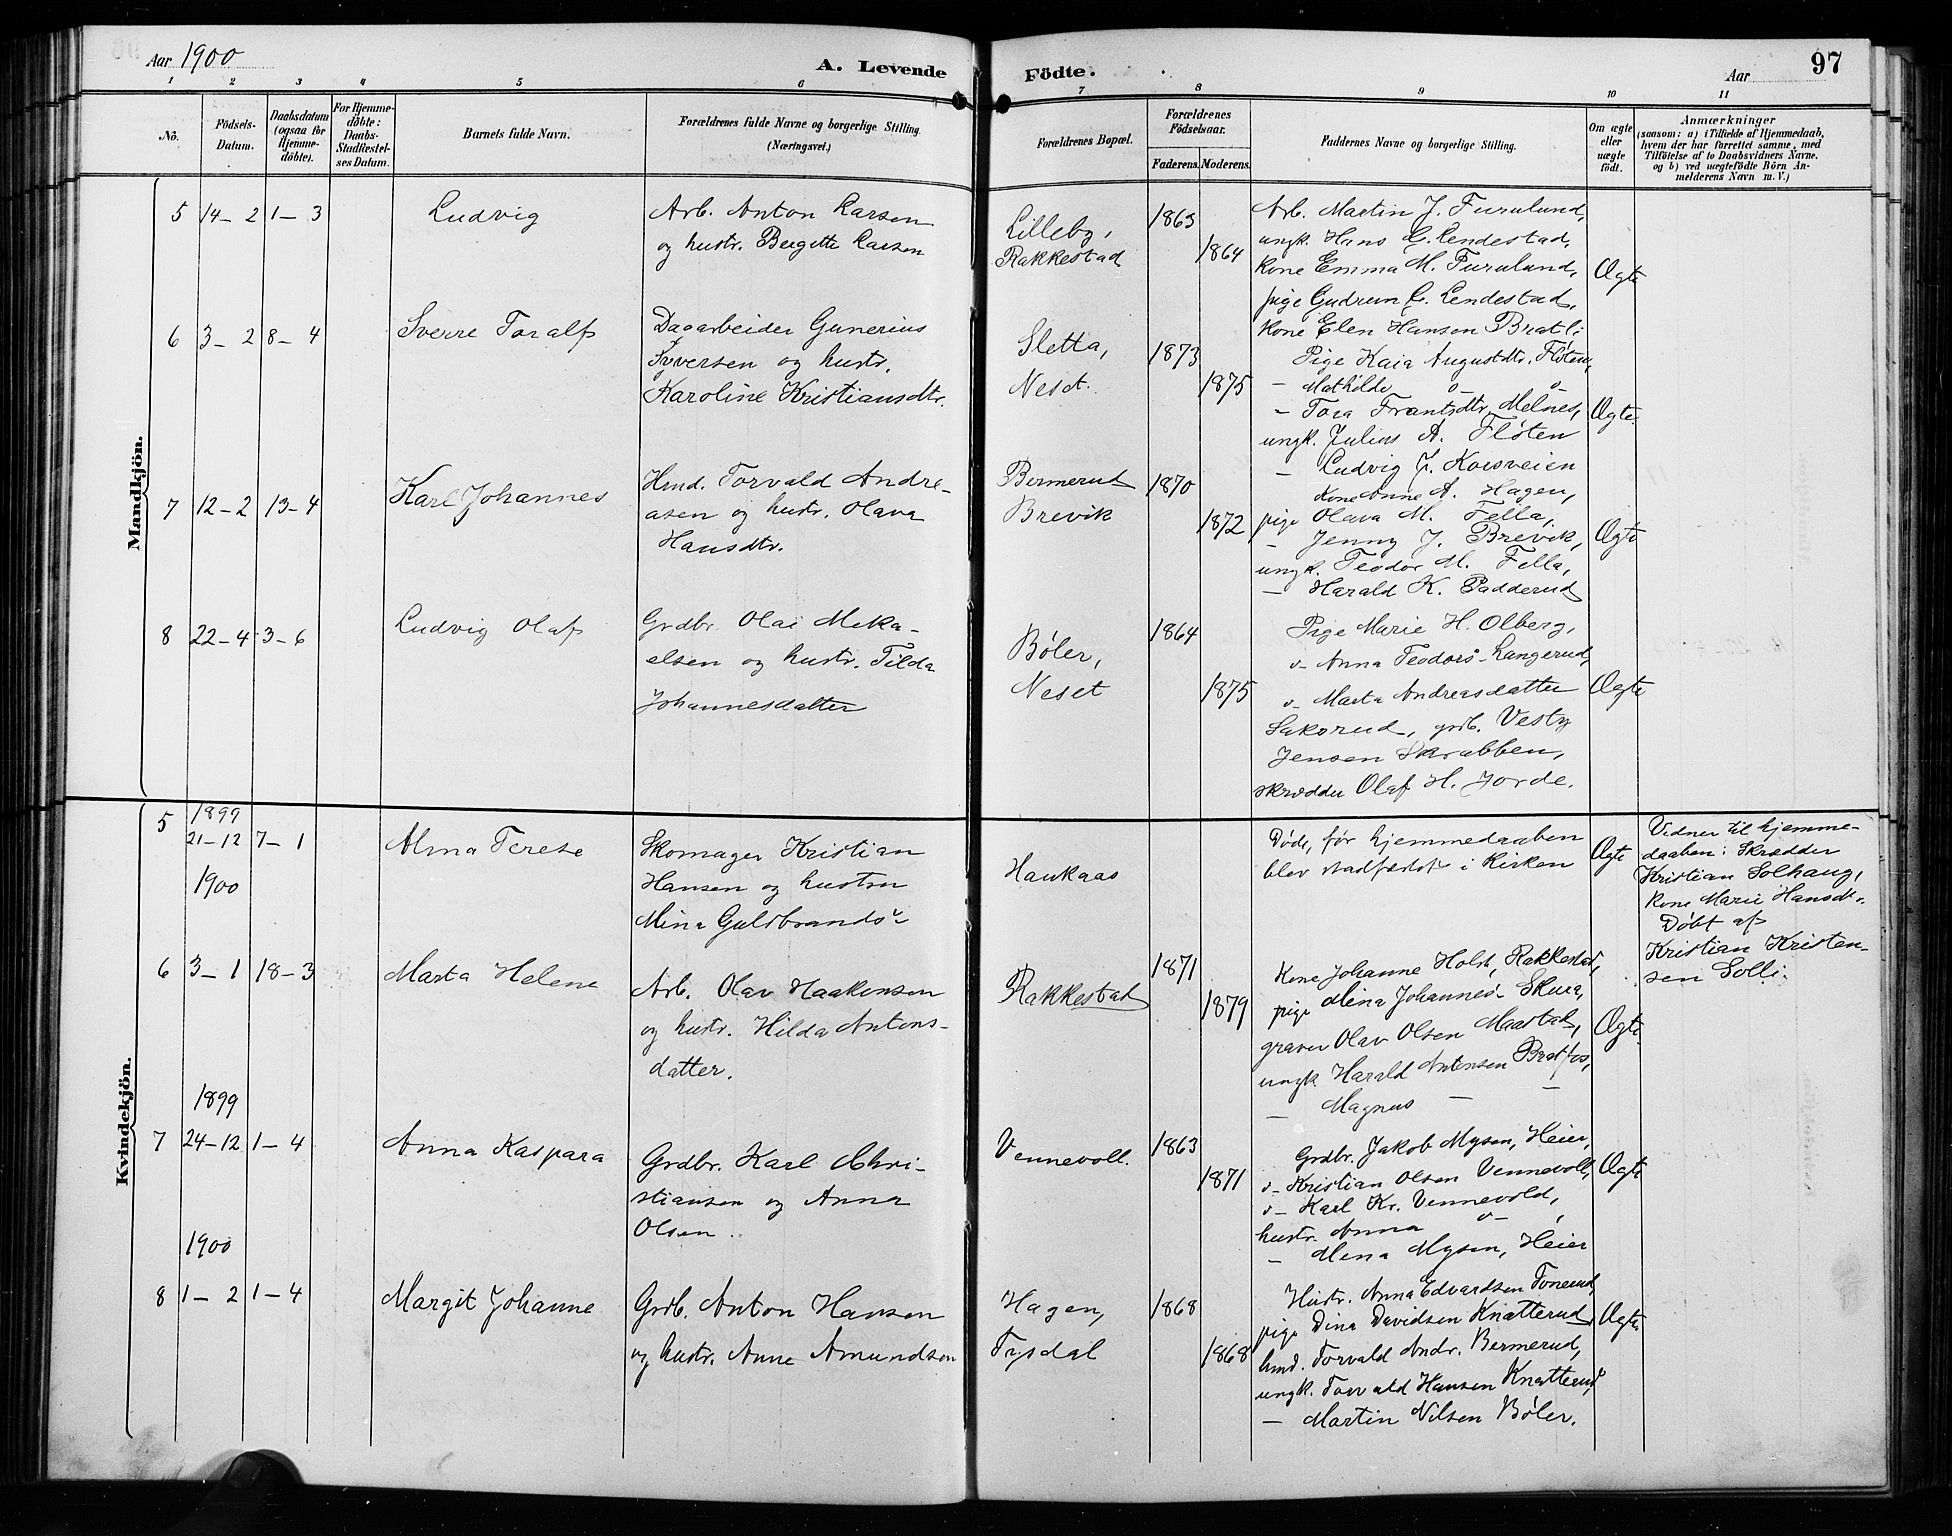 Aar 1900
A. Levende
Födte.
Aar
97
1 2 3 4 5 6 7 8 9 10 11
Nö.
Födsels-
Datum.
Daabsdatum
(ogsaa for
Hjemme-
döbte).
For Hjemme-
döbte:
Daabs-
Stadfæstel-
ses Datum.
Barnets fulde Navn.
Forældrenes fulde Navne og borgerlige Stilling.
(Næringsvei.)
Forældrenes Bopæl.
Forældrenes
Födselsaar.
Faderens. Moderens.
Faddernes Navne og borgerlige Stilling.
Om ægte
eller
uægte
födt.
Anmærkninger
(saasom: a) i Tilfælde af Hjemmedaab,
hvem der har forrettet samme, med
Tilföielse af to Daabsvidners Navne.
og b) ved uægtefödte Börn An-
melderens Navn m. V.)
Mandkjön.
5 14-2 1-3
Ludvig
Arb. Anton Larsen
og hustr. Bergitte Larsen
Lilleby,
Rakkestad
1863
1864
Arb. Martin J. Furulund,
ungk. Hans C. Lendestad,
kone Emma M. Furulund,
pige Gudrun C. Lendestad,
kone Elen Hansen Bratli
Ægte
6 3-2 8-4
Sverre Toralf
Dagarbeider Gunerius
Syversen og hustr.
Karoline Kristiansdtr.
Sletta,
Neset.
1873
1875
Pige Kaia Augustdtr. Fløten,
- Mathilde o- o-
- Tora Frantsdtr. Melnes,
ungk. Julius A. Fløten
- Ludvig J. Korsveien
Ægte.
7 12-2 13-4
Karl Johannes
Hmd. Torvald Andre-
asen og hustr. Olava
Hansdtr.
Bermerud
Brevik
1870
1872
Kone Anne A. Hagen,
pige Olava M. Fella,
- Jenny J. Brevik,
ungk. Teodor M. Fella,
- Harald K. Padderud
Ægte
8 22-4 3-6
Ludvig Olaf
Grdbr. Olai Meka-
elsen og hustr. Tilda
Johannesdatter
Bøler,
Neset
1864
1875
Pige Marie H. Olberg,
o- Anna Teodors- Langerud,
o- Marta Andreasdatter
Sakerud, grdb. Vesty
Jensen Skrabben,
skrædder Olaf H. Jorde.
Ægte
Kvindekjön.
5 1899
21-12 7-1
1900
Alma Terese
Skomager Kristian
Hansen og hustru
Mina Guldbrands
Haukaas
Døde, før hjemmedaaben
blev stadfæstet i kirken
Ægte
Vidner til hjemme-
daaben: Skrædder
Kristian Solhaug,
kone Marie Hansdt.
Døbt af
Kristian Kristen-
sen Solli.
6 3-1 18-3
Marta Helene
Arb. Olav Haakensen
og hustr. Hilda Antons-
datter.
Rakkestad
1871
1879
Kone Johanne Holst, Rakkestad,
pige Mina Johannes- Skura,
graver Olav Olsen Maastad,
ungk. Harald Antonsen Bratfos,
- Magnus - -
Ægte.
1899
7 24-12 1-4
Anna Kaspara
Grdbr. Karl Chri-
stiansen og Anna
Olsen.
Vennevoll.
1863
1871
Grdbr. Jakob Mysen, Heier,
o- Kristian Olsen Vennevoll,
o- Karl Kr. Vennevold,
hustr. Anna o- ,
- Mina Mysen, Heier
Ægte
1900
8 1-2 1-4
Margit Johanne
Grdb. Anton Hansen
og hustr. Anne Amundsen
Hagen,
Trysdal
1868
1868
Hustr. Anna Edvardsen Tonerud,
pige Dina Davidsen Knatterud,
hmd. Torvald Andr. Bermerud,
ungk. Torvald Hansen Knatterud
- Martin Nilsen Bøler.
Ægte